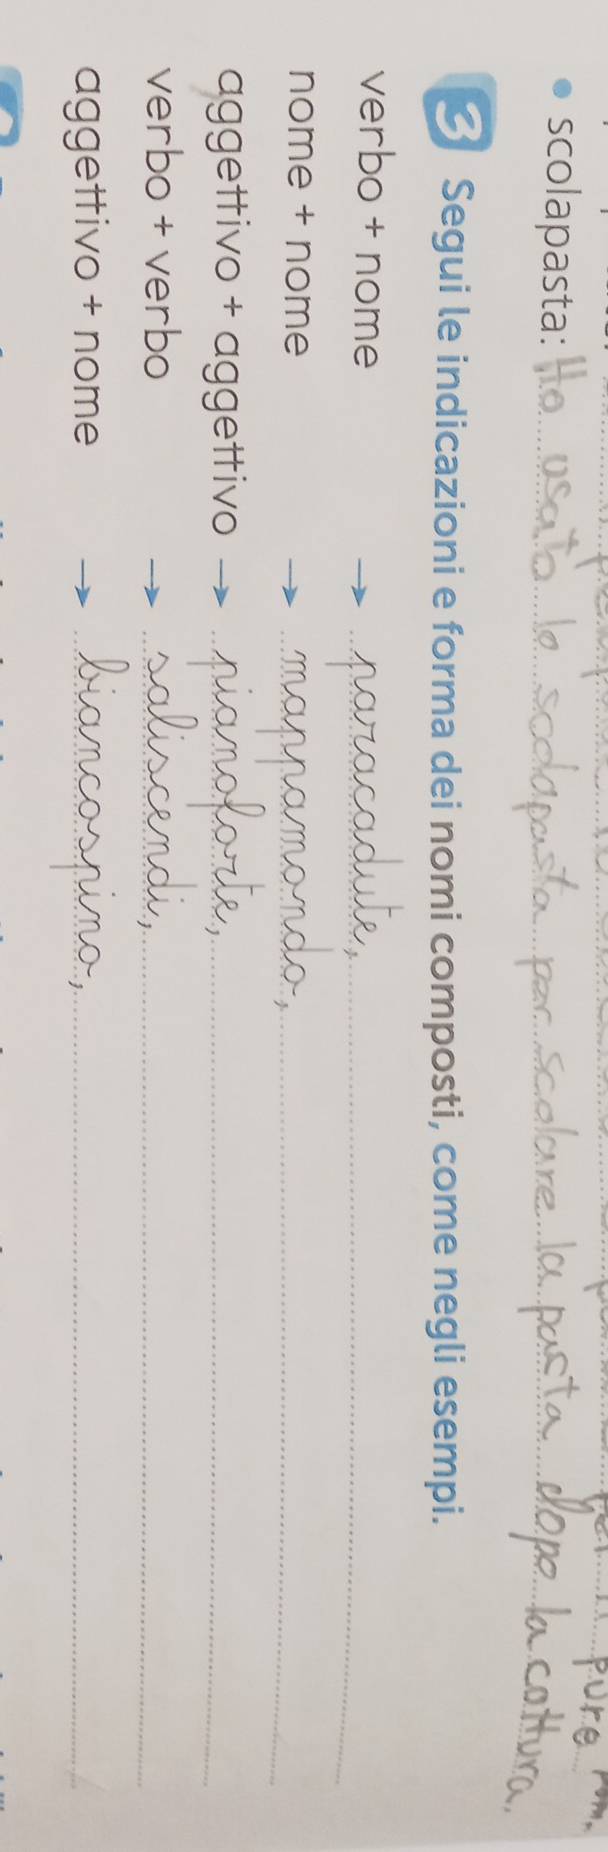 pure pom.
• scolapasta: Ho usato lo scolapasta per scolare la pasta dopo la cottura.
3 Segui le indicazioni e forma dei nomi composti, come negli esempi.
verbo + nome → paracadute,
nome + nome → mappamondo,
aggettivo + aggettivo → pianoforte,
verbo + verbo → saliscendi,
aggettivo + nome → biancospino,